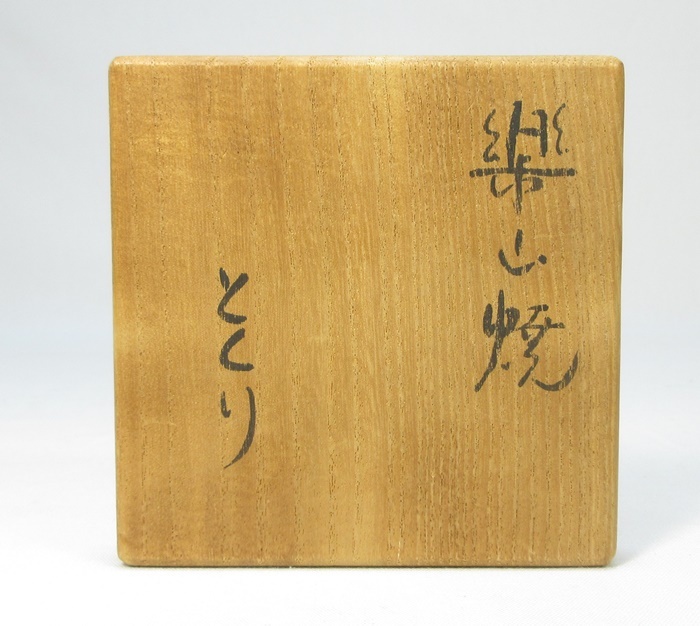 樂山焼
とくり